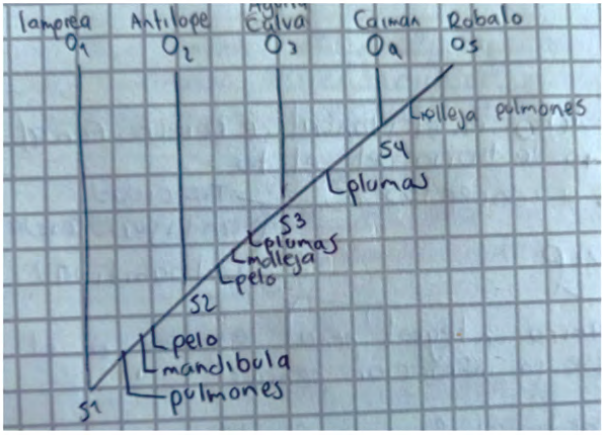 lamprea Antilope Aguila Calva Caimán Robalo
O1 O2 O3 O4 O5
molleja pulmones
S4
plumas
S3
plumas
molleja
pelo
S2
pelo
mandibula
pulmones
S1